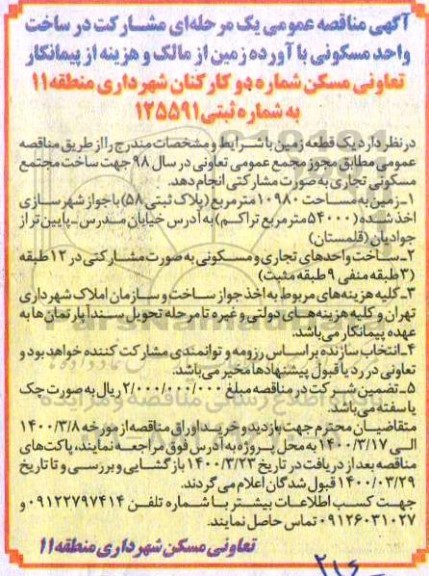 آگهی مناقصه عمومی یک مرحله‌ای مشارکت در ساخت
واحد مسکونی با آورده زمین از مالک و هزینه از پیمانکار
تعاونی مسکن شماره دو کارکنان شهرداری منطقه ۱۱
به شماره ثبتی ۱۲۵۵۹۱
درنظر دارد یک قطعه زمین با شرایط و مشخصات مندرج را از طریق مناقصه
عمومی مطابق مجوز مجمع عمومی تعاونی در سال ۹۸ جهت ساخت مجتمع
مسکونی تجاری به صورت مشارکتی انجام دهد.
۱- زمین به مساحت ۱۰۹۸۰ مترمربع (پلاک ثبتی ۵۸) با جواز شهرسازی
اخذ شده (۵۴۰۰۰ مترمربع تراکم) به آدرس خیابان مدرس - پایین تر از
جوادیان (قلمستان)
۲- ساخت واحدهای تجاری و مسکونی به صورت مشارکتی در ۱۲ طبقه
(۳ طبقه منفی ۹ طبقه مثبت)
۳- کلیه هزینه‌های مربوط به اخذ جواز ساخت و سازمان املاک شهرداری
تهران و کلیه هزینه‌های دولتی و غیره تا مرحله تحویل سند آپارتمان‌ها به
عهده پیمانکار می‌باشد.
۴- انتخاب سازنده براساس رزومه و توانمندی مشارکت کننده خواهد بود و
تعاونی در رد یا قبول پیشنهادها مخیر می‌باشد.
۵- تضمین شرکت در مناقصه مبلغ ۲/۰۰۰/۰۰۰/۰۰۰ ریال به صورت چک
یا سفته می‌باشد.
متقاضیان محترم جهت بازدید و خرید اوراق مناقصه از مورخه ۱۴۰۰/۳/۸
الی ۱۴۰۰/۳/۱۷ به محل پروژه به آدرس فوق مراجعه نمایند، پاکت‌های
مناقصه بعد از دریافت در تاریخ ۱۴۰۰/۳/۲۳ بازگشایی و بررسی و تا تاریخ
۱۴۰۰/۰۳/۲۹ قبول شدگان اعلام می‌گردند.
جهت کسب اطلاعات بیشتر با شماره تلفن ۰۹۱۲۲۷۹۷۴۱۴ و
۰۹۱۲۶۰۳۱۰۲۷ تماس حاصل نمایند.
تعاونی مسکن شهرداری منطقه ۱۱